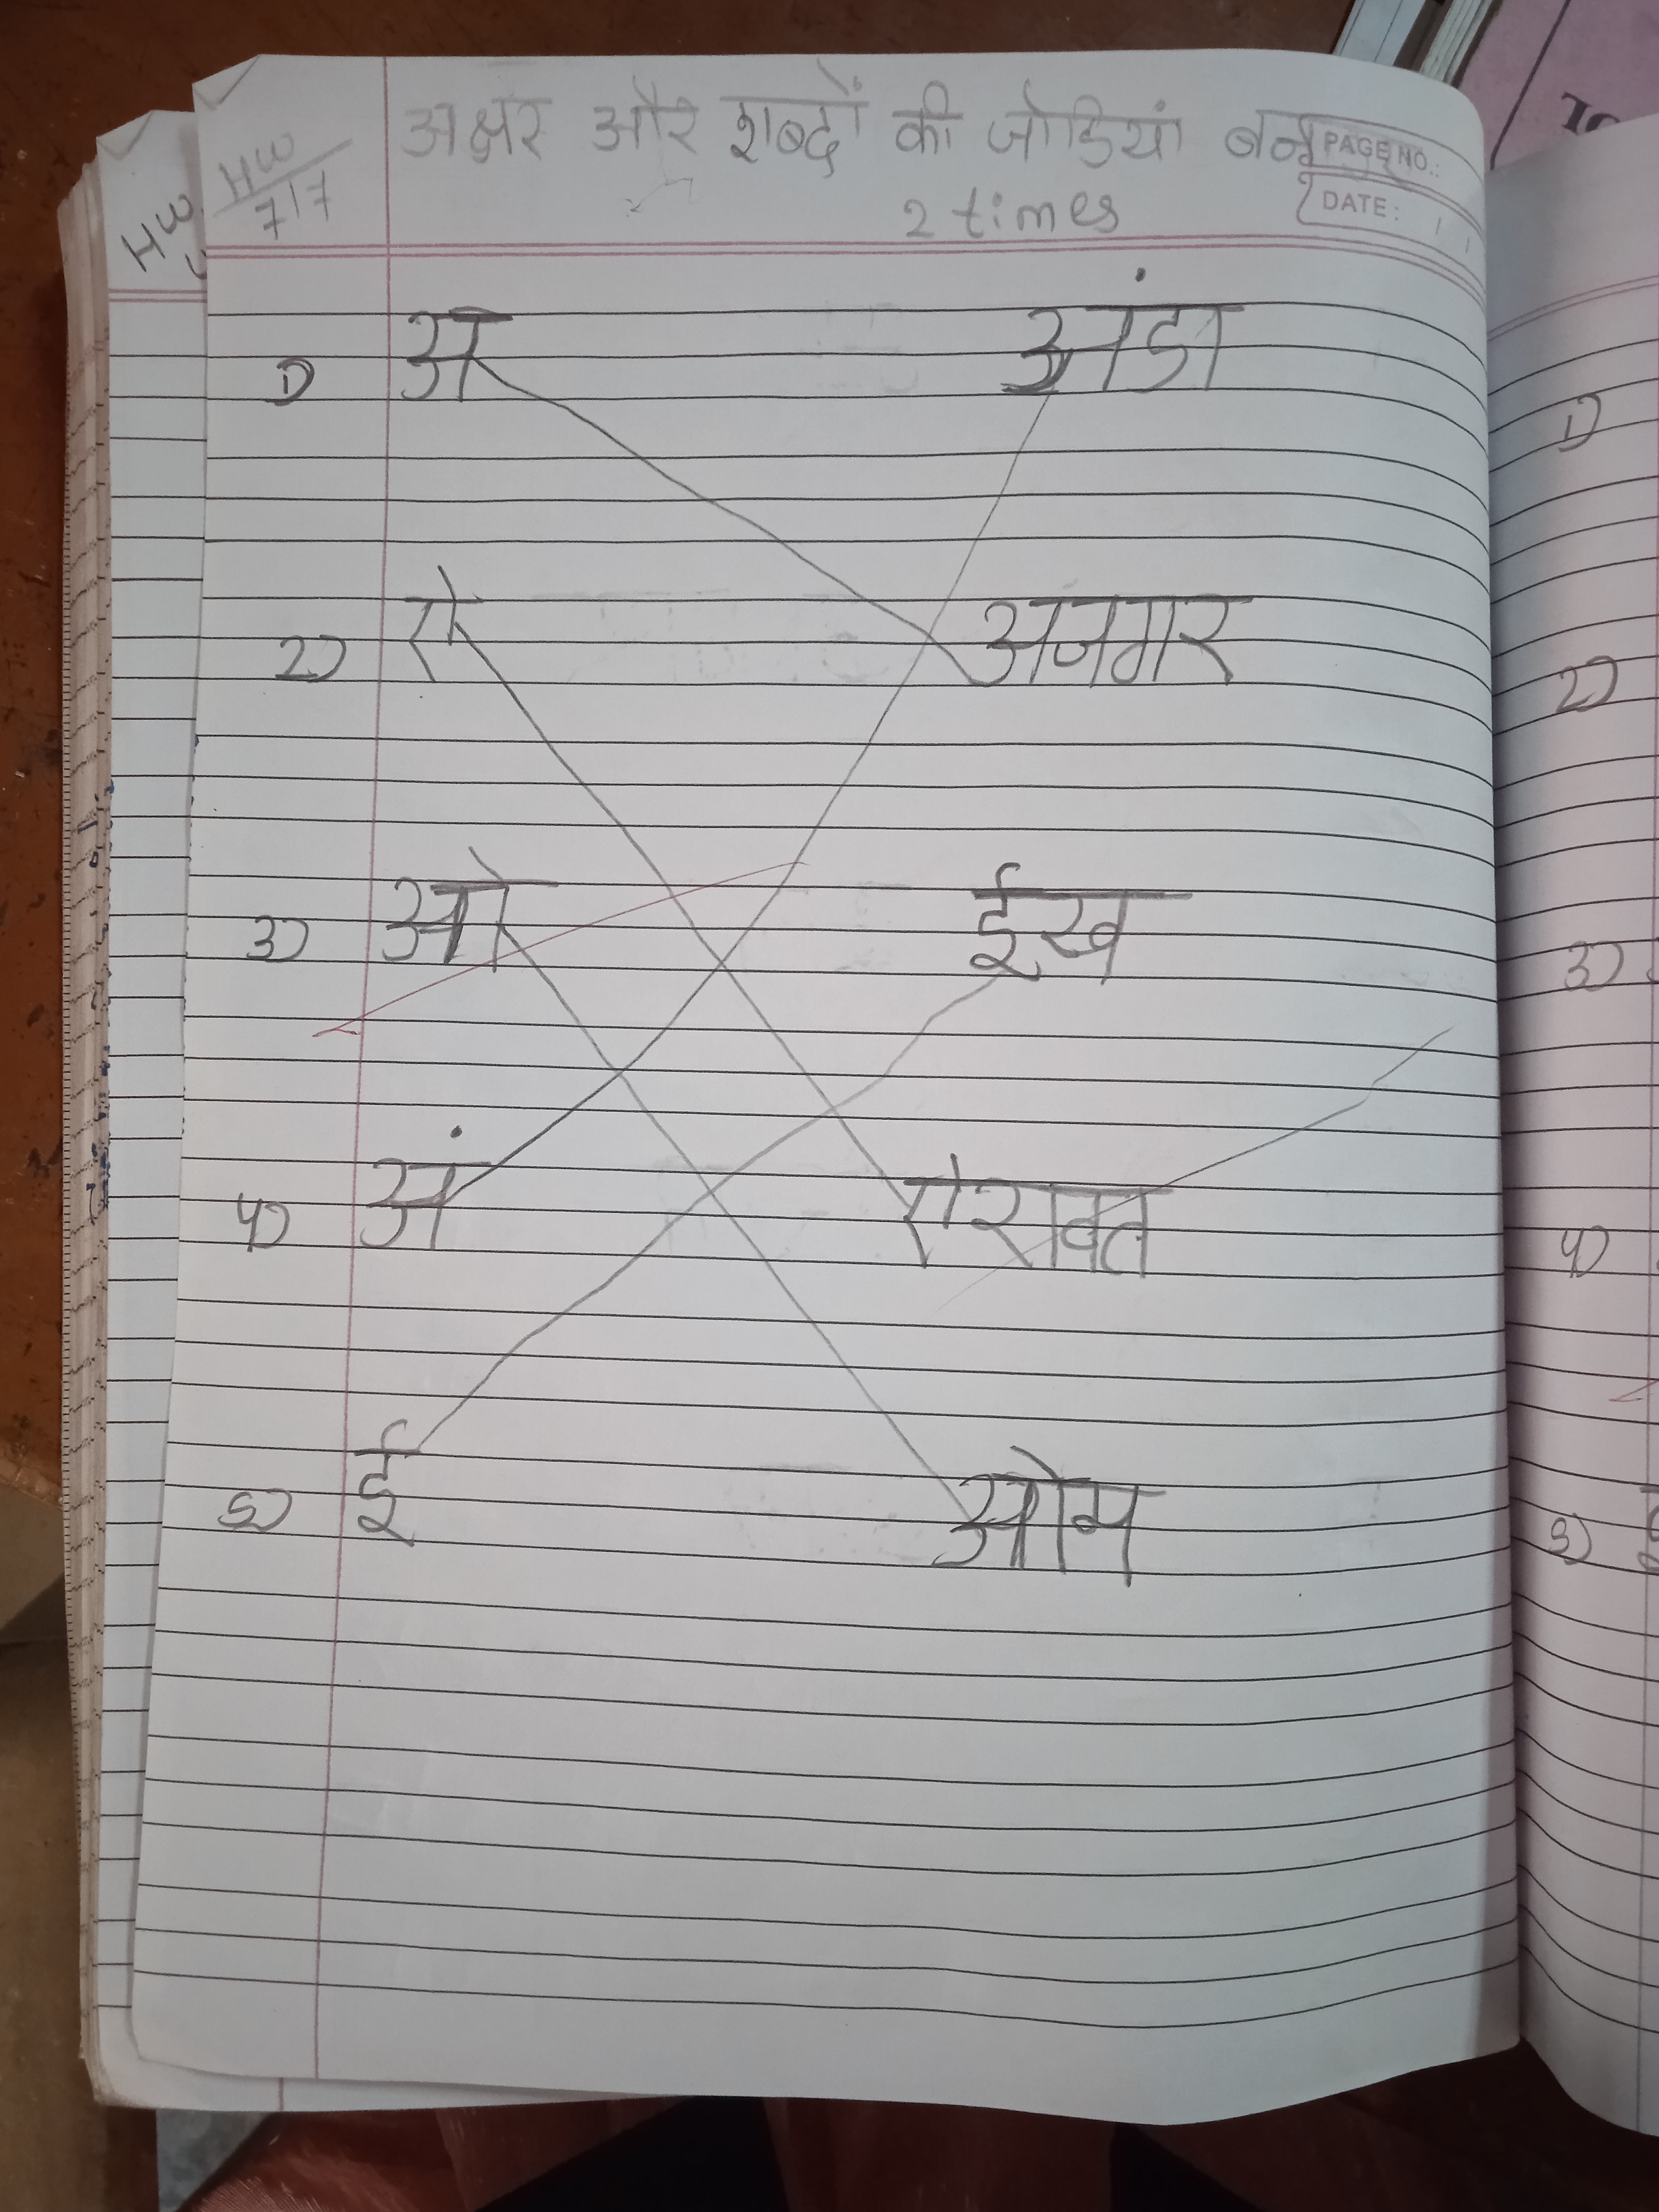 HW
7/7
अक्षर और शब्दों की जोडियां
PAGE NO.:
2 times
DATE: / /
1) अ अंडा
2) ऐ अजगर
3) ओ ईख
4) अं ऐरावत
5) ई ओम
HW
1)
2)
3)
4)
5)